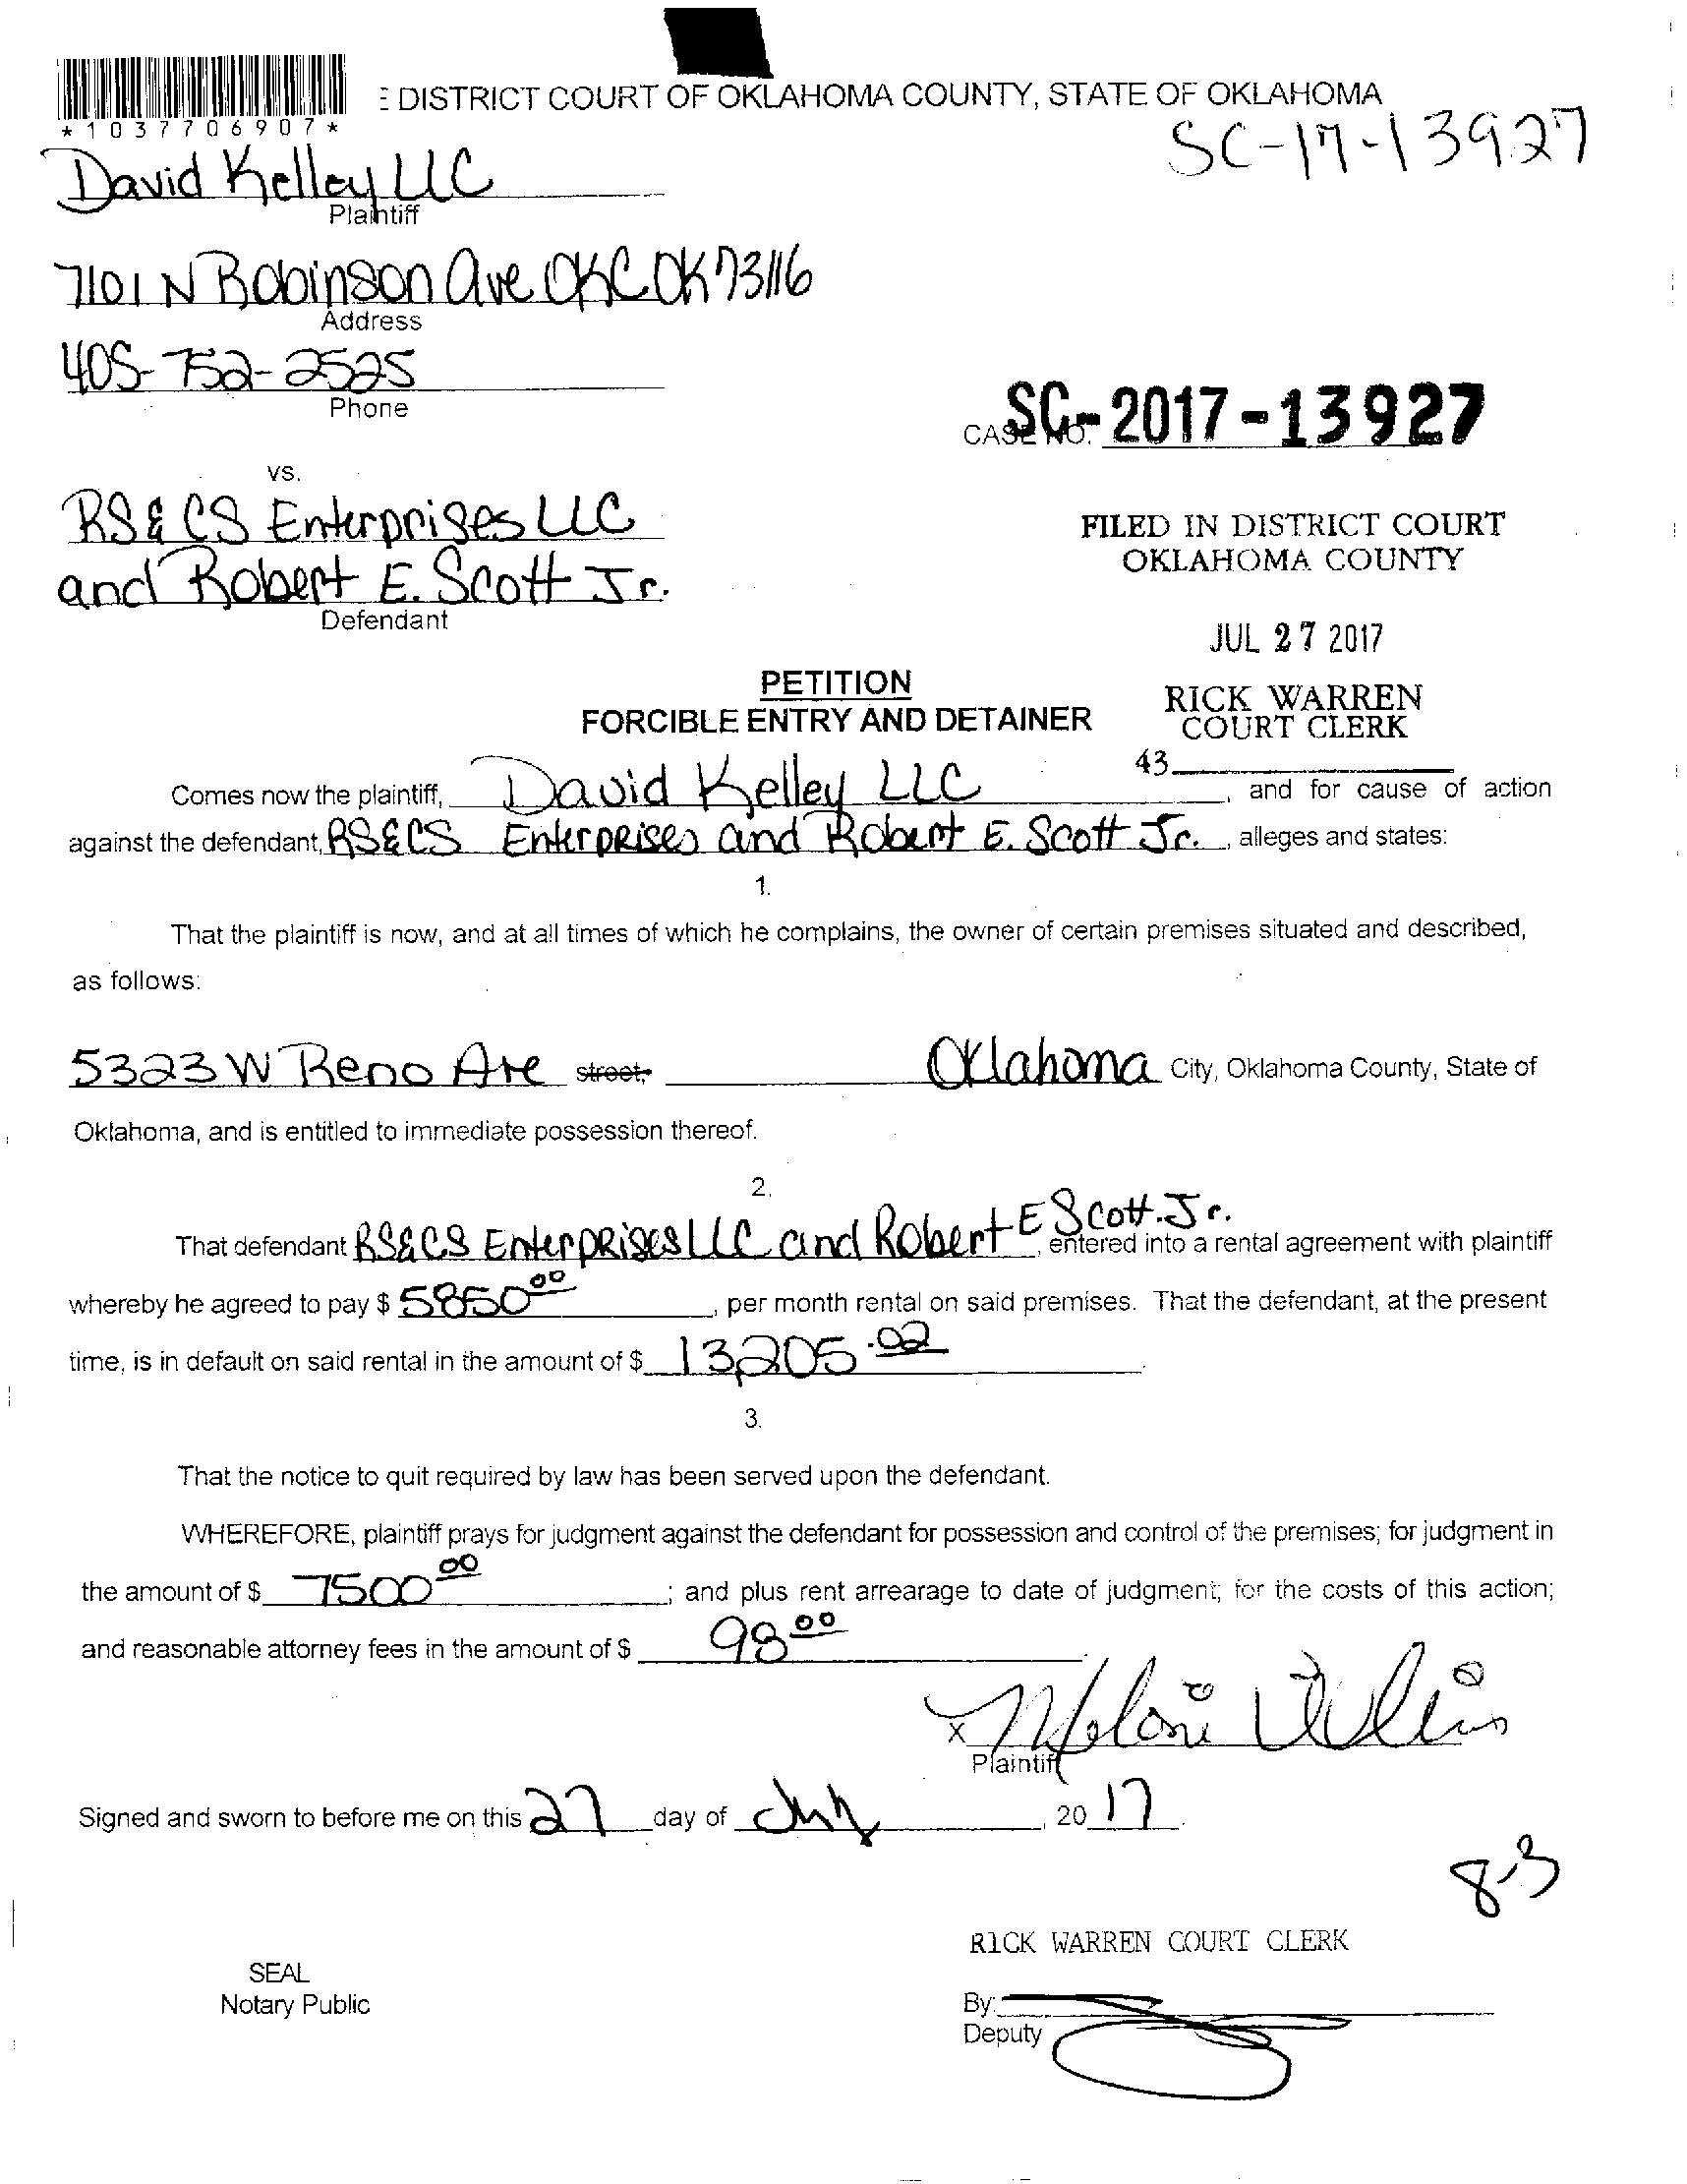 DISTRICT COURT OF OKLAHOMA COUNTY, STATE OF OKLAHOMA
*1037706907*
SC-17-13927
David Kelley LLC
Plaintiff
7101 N Robinson Ave OKC OK 73116
Address
405-752-2525
Phone
CASE NO. SC-2017-13927
vs.
RS & CS Enterprises LLC
and Robert E. Scott Jr.
Defendant
FILED IN DISTRICT COURT
OKLAHOMA COUNTY
JUL 27 2017
RICK WARREN
COURT CLERK
43
PETITION
FORCIBLE ENTRY AND DETAINER
Comes now the plaintiff, David Kelley LLC, and for cause of action
against the defendant, RS&CS Enterprises and Robert E. Scott Jr., alleges and states:
1.
That the plaintiff is now, and at all times of which he complains, the owner of certain premises situated and described,
as follows:
5323 W Reno Ave street, Oklahoma City, Oklahoma County, State of
Oklahoma, and is entitled to immediate possession thereof.
2.
That defendant RS&CS Enterprises LLC and Robert E Scott. Jr., entered into a rental agreement with plaintiff
whereby he agreed to pay $ 5850.00, per month rental on said premises. That the defendant, at the present
time, is in default on said rental in the amount of $ 13,205.02.
3.
That the notice to quit required by law has been served upon the defendant.
WHEREFORE, plaintiff prays for judgment against the defendant for possession and control of the premises; for judgment in
the amount of $ 7500 00; and plus rent arrearage to date of judgment; for the costs of this action;
and reasonable attorney fees in the amount of $ 98 00.
X
Plaintiff
Signed and sworn to before me on this 27 day of July, 20 17.
8-3
RICK WARREN COURT CLERK
SEAL
Notary Public
By:
Deputy